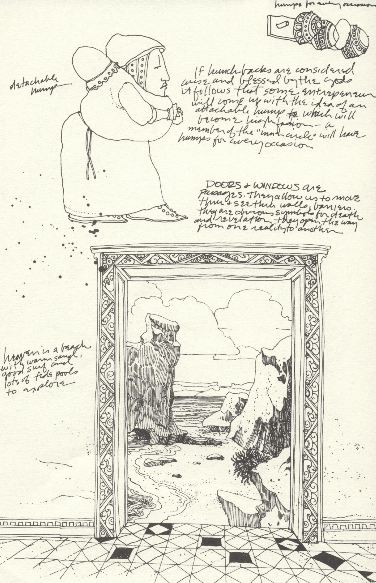 humps for every occasion
detachable
hump
If hunchbacks are considered
wise and blessed by the gods
it follows that some entrepreneur
will come up with the idea of an
attachable hump which will
become high fashion - a
member of the "inner circle" will have
humps for every occasion
DOORS & WINDOWS are
passages. They allow us to move
thru & see thru walls, barriers.
they are obvious symbols for death
and revelation. they open the way
from one reality to another
heaven is a beach
with warm sand,
good surf and
lots of tide pools
to explore